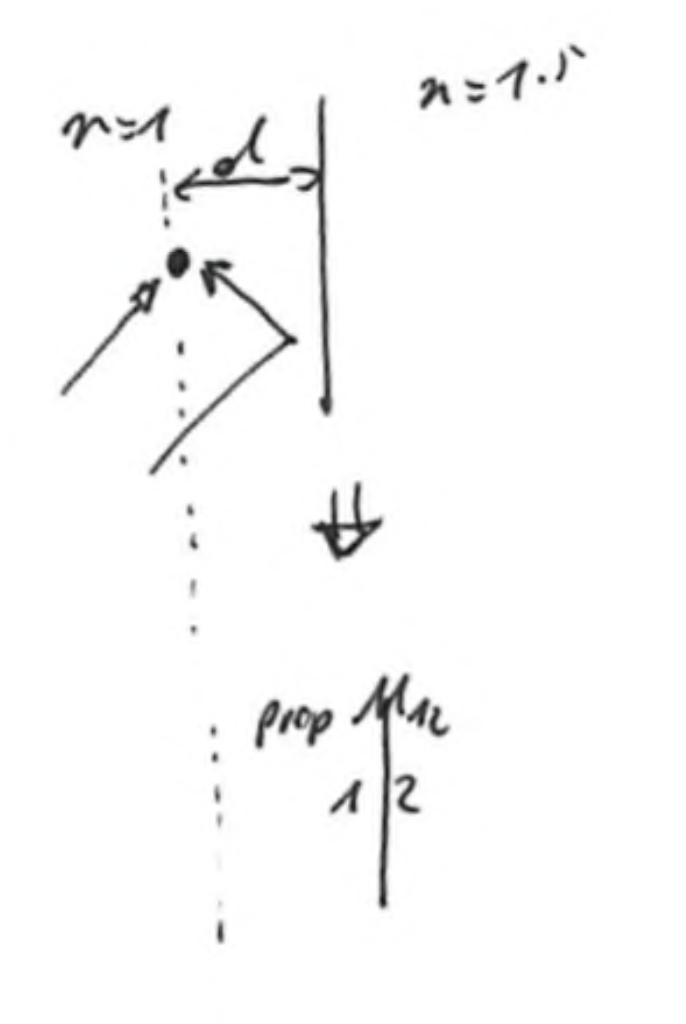 n=1.5
n=1
d
prop M12
1 2